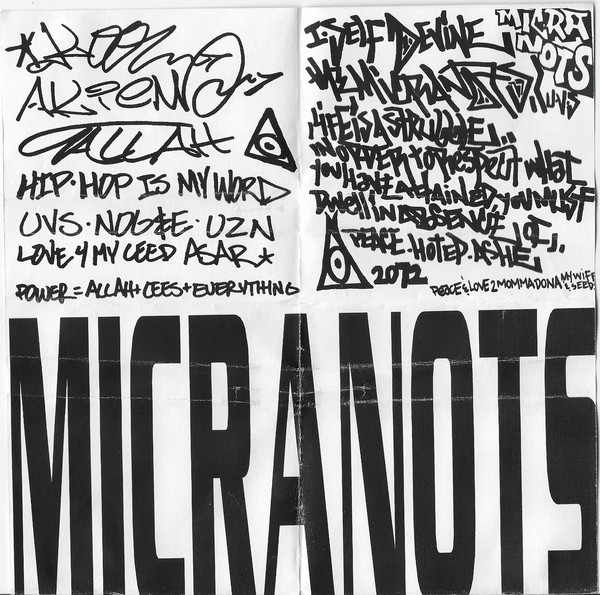 AKIEM
ALLAH
HIP·HOP IS MY WORD
UVS · UZN
LOVE 4 MY CEED ASAR*
POWER = ALLAH+CEES+EVERYTHING
I·SELF DEVINE
MIKRA
NOTS
MICRANOTS UVS
LIFE IS A STRUGGLE...
IN ORDER TO RESPECT WHAT
YOU HAVE ATTAINED YOU MUST
DWELL IN ABSENCE OF..
PEACE·HOTEP·ASHE
2072
PEACE & LOVE 2 MOMMADONA MY WIFE & SEEDS
MICRANOTS